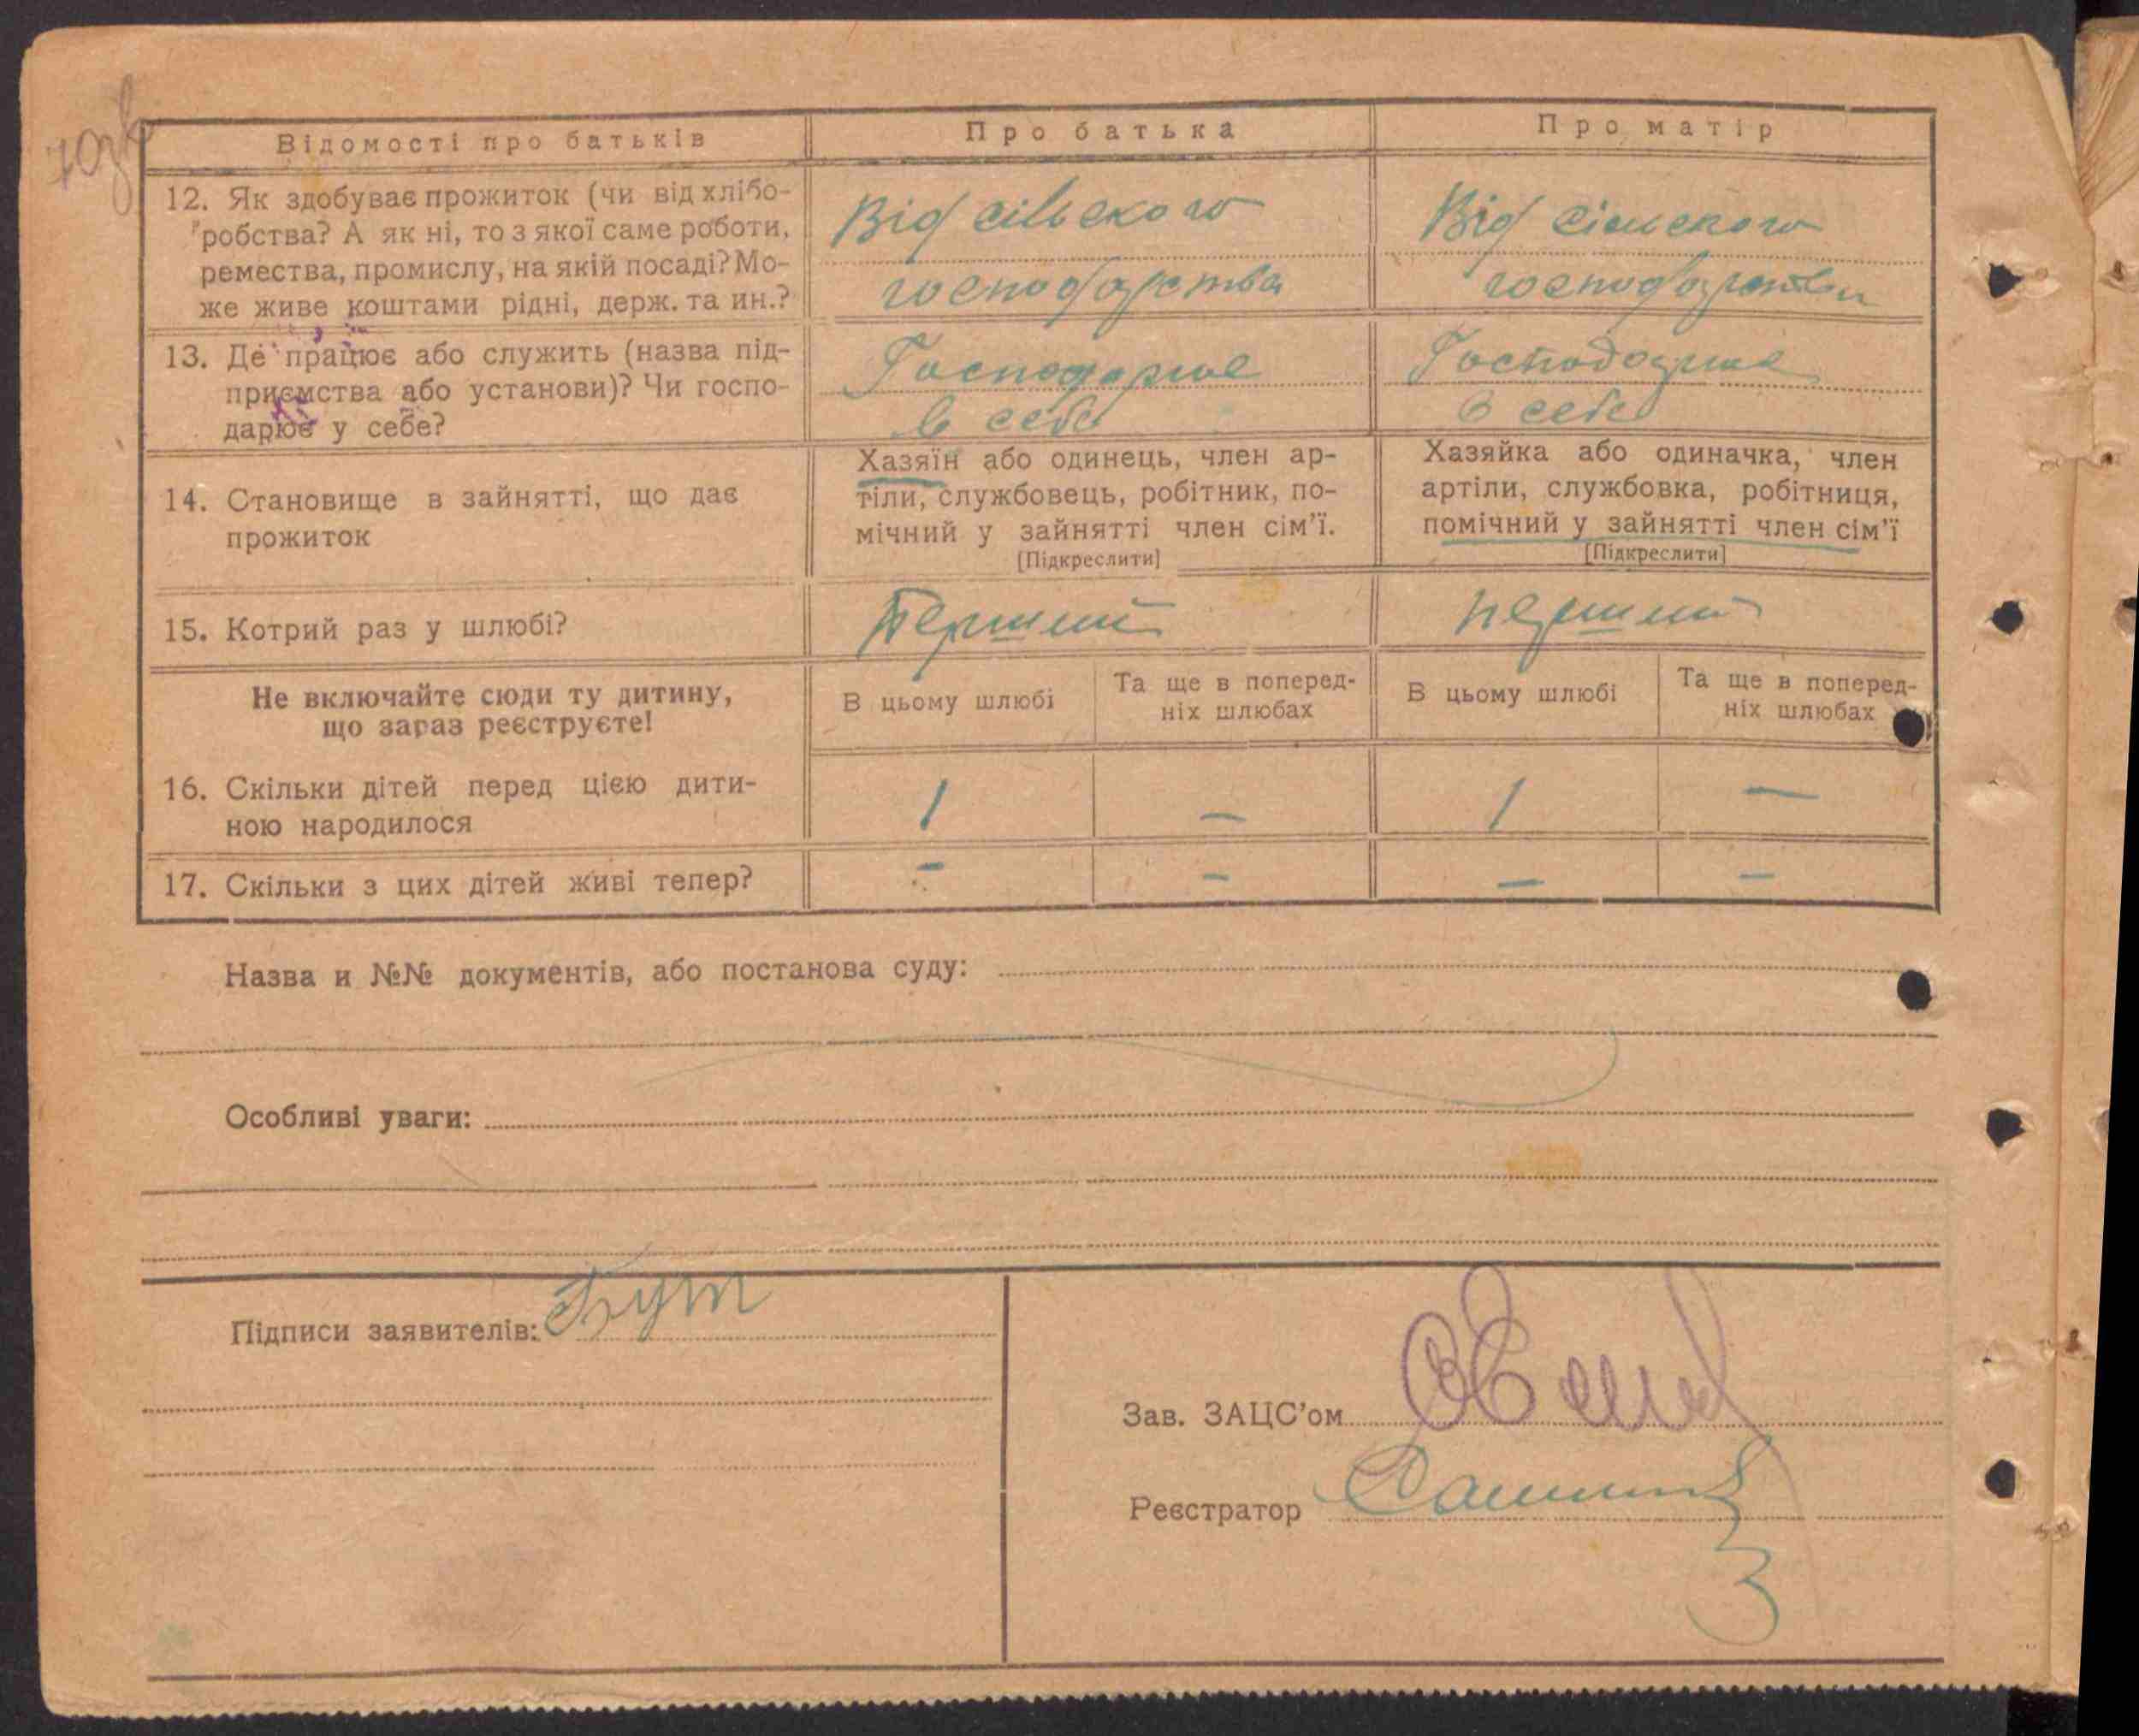 Відомості про батьків
Про батька
Про матір
12. Як здобуває прожиток (чи від хлібо-
робства? А як ні, то з якої саме роботи,
ремества, промислу, на якій посаді? Мо-
же живе коштами рідні, держ. та ин.?
Від сільського
господарства
Від сільського
господарства
13. Де працює або служить (назва під-
приємства або установи)? Чи госпо-
дарює у себе?
Господарює
в себе
Господарює
в себе
14. Становище в зайнятті, що дає
прожиток
Хазяїн або одинець, член ар-
тіли, службовець, робітник, по-
мічний у зайнятті член сім'ї.
[Підкреслити]
Хазяйка або одиначка, член
артіли, службовка, робітниця,
помічний у зайнятті член сім'ї
[Підкреслити]
15. Котрий раз у шлюбі?
Перший
перший
Не включайте сюди ту дитину,
що зараз реєструєте!
В цьому шлюбі
Та ще в поперед-
ніх шлюбах
В цьому шлюбі
Та ще в поперед-
ніх шлюбах
16. Скільки дітей перед цією дити-
ною народилося
1 — 1 —
17. Скільки з цих дітей живі тепер?
— — — —
Назва и №№ документів, або постанова суду:
Особливі уваги:
Підписи заявителів: Бут
Зав. ЗАЦС'ом
Реєстратор